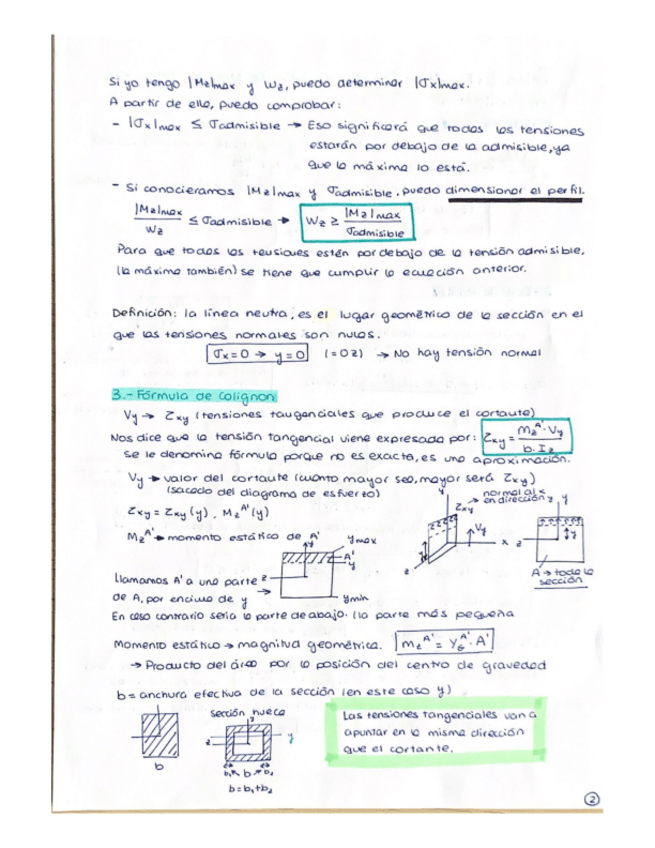 Si yo tengo |Mz|max y Wz, puedo determinar |σx|max.
A partir de ello, puedo comprobar:
- |σx|max ≤ σadmisible → Eso significará que todas las tensiones
estarán por debajo de la admisible, ya
que la máxima lo está.
- Si conocieramos |Mz|max y σadmisible, puedo dimensionar el perfil.
|Mz|max / Wz ≤ σadmisible → Wz ≥ |Mz|max / σadmisible
Para que todas las tensiones estén por debajo de la tensión admisible,
(la máxima también) se tiene que cumplir la ecuación anterior.
Definición: la línea neutra, es el lugar geométrico de la sección en el
que las tensiones normales son nulas.
σx = 0 → y = 0 (= 0z) → No hay tensión normal
3.- Fórmula de Colignon
Vy → τxy (tensiones tangenciales que produce el cortante)
Nos dice que la tensión tangencial viene expresada por: τxy = mz^A'·Vy / b·Iz
Se le denomina fórmula porque no es exacta, es una aproximación.
Vy → valor del cortante (cuanto mayor sea, mayor será τxy)
(sacado del diagrama de esfuerzo)
normal al x
en dirección y
τxy = τxy (y), Mz^A'(y)
y
τxy
Vy
x
z
y
z
y
A → toda la
sección
Mz^A' → momento estático de A'
y
ymax
A'
y
z
ymin
Llamamos A' a una parte
de A, por encima de y →
En caso contrario sería la parte de abajo. (la parte más pequeña
Momento estático → magnitud geométrica. mz^A' = yG^A'·A'
→ Producto del área por la posición del centro de gravedad
b = anchura efectiva de la sección (en este caso y)
b
sección hueca
z
y
b1 b b2
b = b1 + b2
Las tensiones tangenciales van a
apuntar en la misma dirección
que el cortante.
2